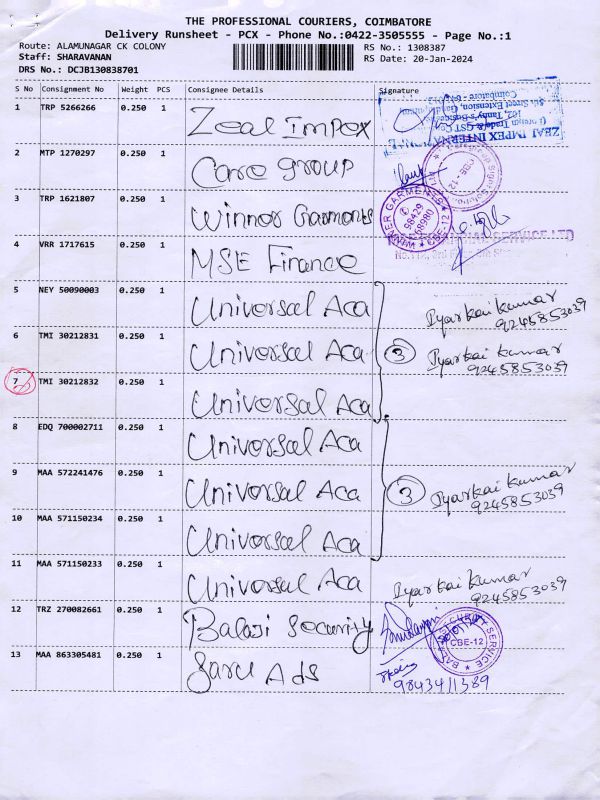 THE PROFESSIONAL COURIERS, COIMBATORE
Delivery Runsheet - PCX - Phone No.:0422-3505555 - Page No.:1
Route: ALAMUNAGAR CK COLONY
RS No.: 1308387
Staff: SHARAVANAN
RS Date: 20-Jan-2024
DRS No.: DCJB130838701
S No Consignment No Weight PCS Consignee Details Signature
1 TRP 5266266 0.250 1 Zeal Impex
ZEAL IMPEX INTERNATIONAL
2 MTP 1270297 0.250 1 Care group
CBE - 12
3 TRP 1621807 0.250 1 Winner Garments
WINNER GARMENTS CBE-12 98429 68980
4 VRR 1717615 0.250 1 MSE Finance
SERVICE LTD
5 NEY 50090003 0.250 1 Universal Aca
Pyarkai kumar
9245853039
6 TMI 30212831 0.250 1 Universal Aca 3 Pyarkai kumar
9245853039
7 TMI 30212832 0.250 1 Universal Aca
8 EDQ 700002711 0.250 1 Universal Aca
9 MAA 572241476 0.250 1 Universal Aca 3 Pyarkai kumar
9245853039
10 MAA 571150234 0.250 1 Universal Aca
11 MAA 571150233 0.250 1 Universal Aca Pyarkai kumar
9245853039
12 TRZ 270082661 0.250 1 Balaji Security
CBE-12
SERVICE
13 MAA 863305481 0.250 1 Saru Ads
9843411389